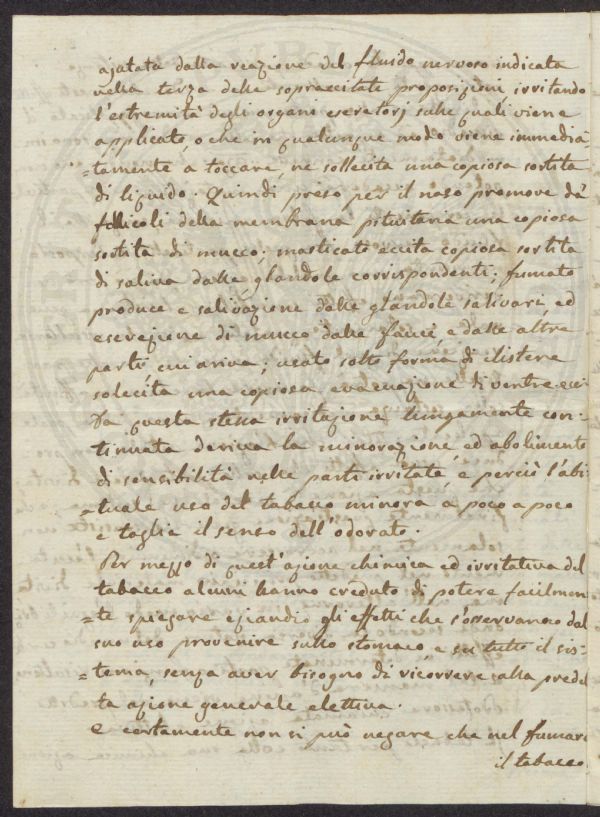 ajutata dalla reazione del fluido nervoso indicata
nella terza delle sopraccitate proposizioni irritando
l'estremità degli organi escretorj sulle quali viene
applicato, o che in qualunque modo viene immedia=
=tamente a toccare, ne sollecita una copiosa sortita
di liquido. Quindi preso per il naso promove da'
follicoli della membrana pituitaria una copiosa
sortita di mucco; masticato eccita copiosa sortita
di saliva dalle glandole corrispondenti; fumato
produce e salivazione dalle glandole salivari, ed
escrezione di mucco dalle fauci, e dalle altre
parti cui ariva; usato sotto forma di clistere
solecita una copiosa evacuazione di ventre ecc:
Da questa stessa irritazione lungamente con=
tinuata deriva la minorazione, ed abolimento
di sensibilità nelle parti irritate, e perciò l'abi
=tuale uso del tabacco minora a poco a poco
e toglie il senso dell'odorato.
Per mezzo di quest'azione chimica ed irritativa del
tabacco alcuni hanno creduto di potere facilmen
=te spiegare eziandio gli effetti che s'osservano dal
suo uso provenire sullo stomaco, e su tutto il sis=
=tema, senza aver bisogno di ricorrere alla predet
ta azione generale elettiva.
E certamente non si può negare che nel fumare
il tabacco